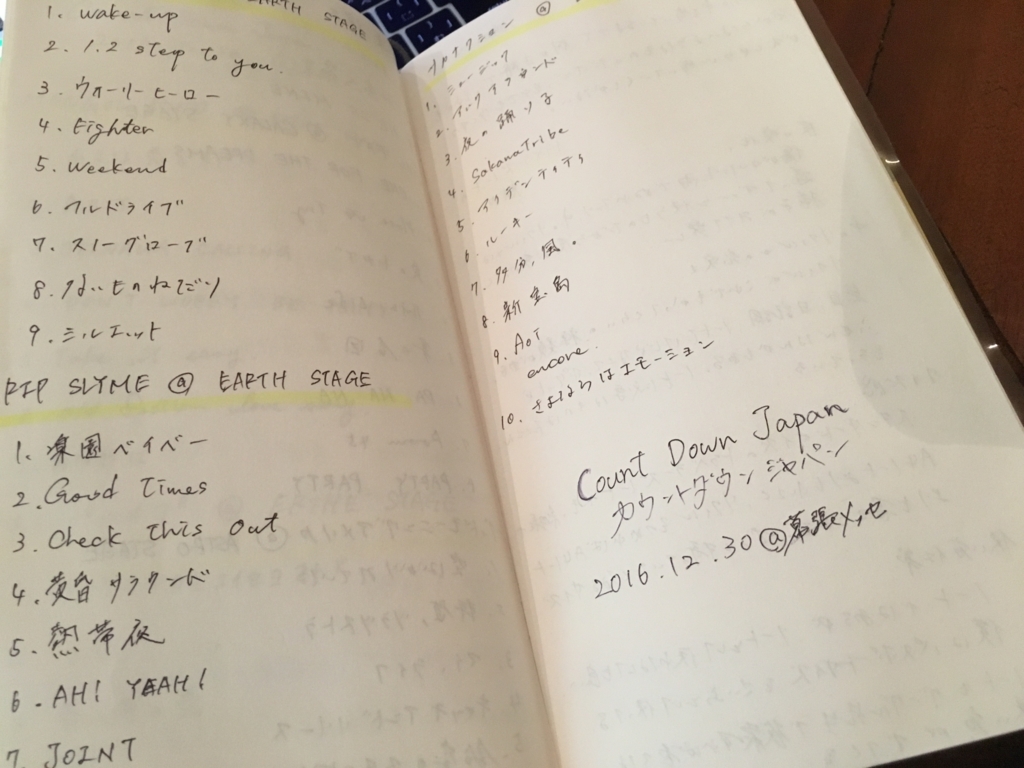 EARTH STAGE
1. wake-up
2. 1.2 step to you.
3. ウォーリーヒーロー
4. Fighter
5. weekend
6. フルドライブ
7. スノーグローブ
8. ないものねだり
9. シルエット
RIP SLYME @ EARTH STAGE
1. 楽園ベイベー
2. Good Times
3. Check This Out
4. 黄昏サラウンド
5. 熱帯夜
6. AH! YEAH!
7. JOINT
サカナクション @
1. ミュージック
2. アルクアラウンド
3. 夜の踊り子
4. SakanaTribe
5. アイデンティティ
6. ルーキー
7. 多分、風。
8. 新宝島
9. AoI
encore.
10. さよならはエモーション
Count Down Japan
カウントダウンジャパン
2016.12.30@幕張メッセ